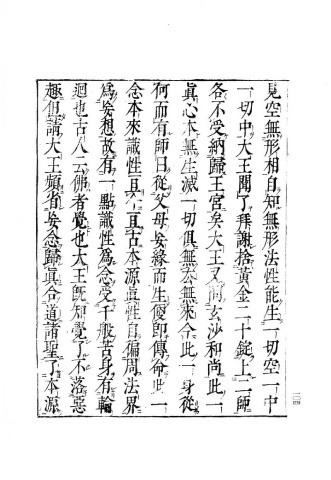 見空無形相自知無形法性能生一切空一中
一切中大王聞了拜謝捨黃金二十錠上二師
各不受納歸王宮矣大王又問玄沙和尚此一
眞心本無生滅一切俱無去無來今此一身從
何而有師曰從父母妄緣而生便即傳命此一
念本來識性亘今亘古本源眞性自徧周法界
爲妄想故有一點識性爲念受千般苦身有輪
迴也古人云佛者覺也大王既知覺了不落惡
趣但請大王頻省妄念歸眞合道諸聖了本源
二〇四